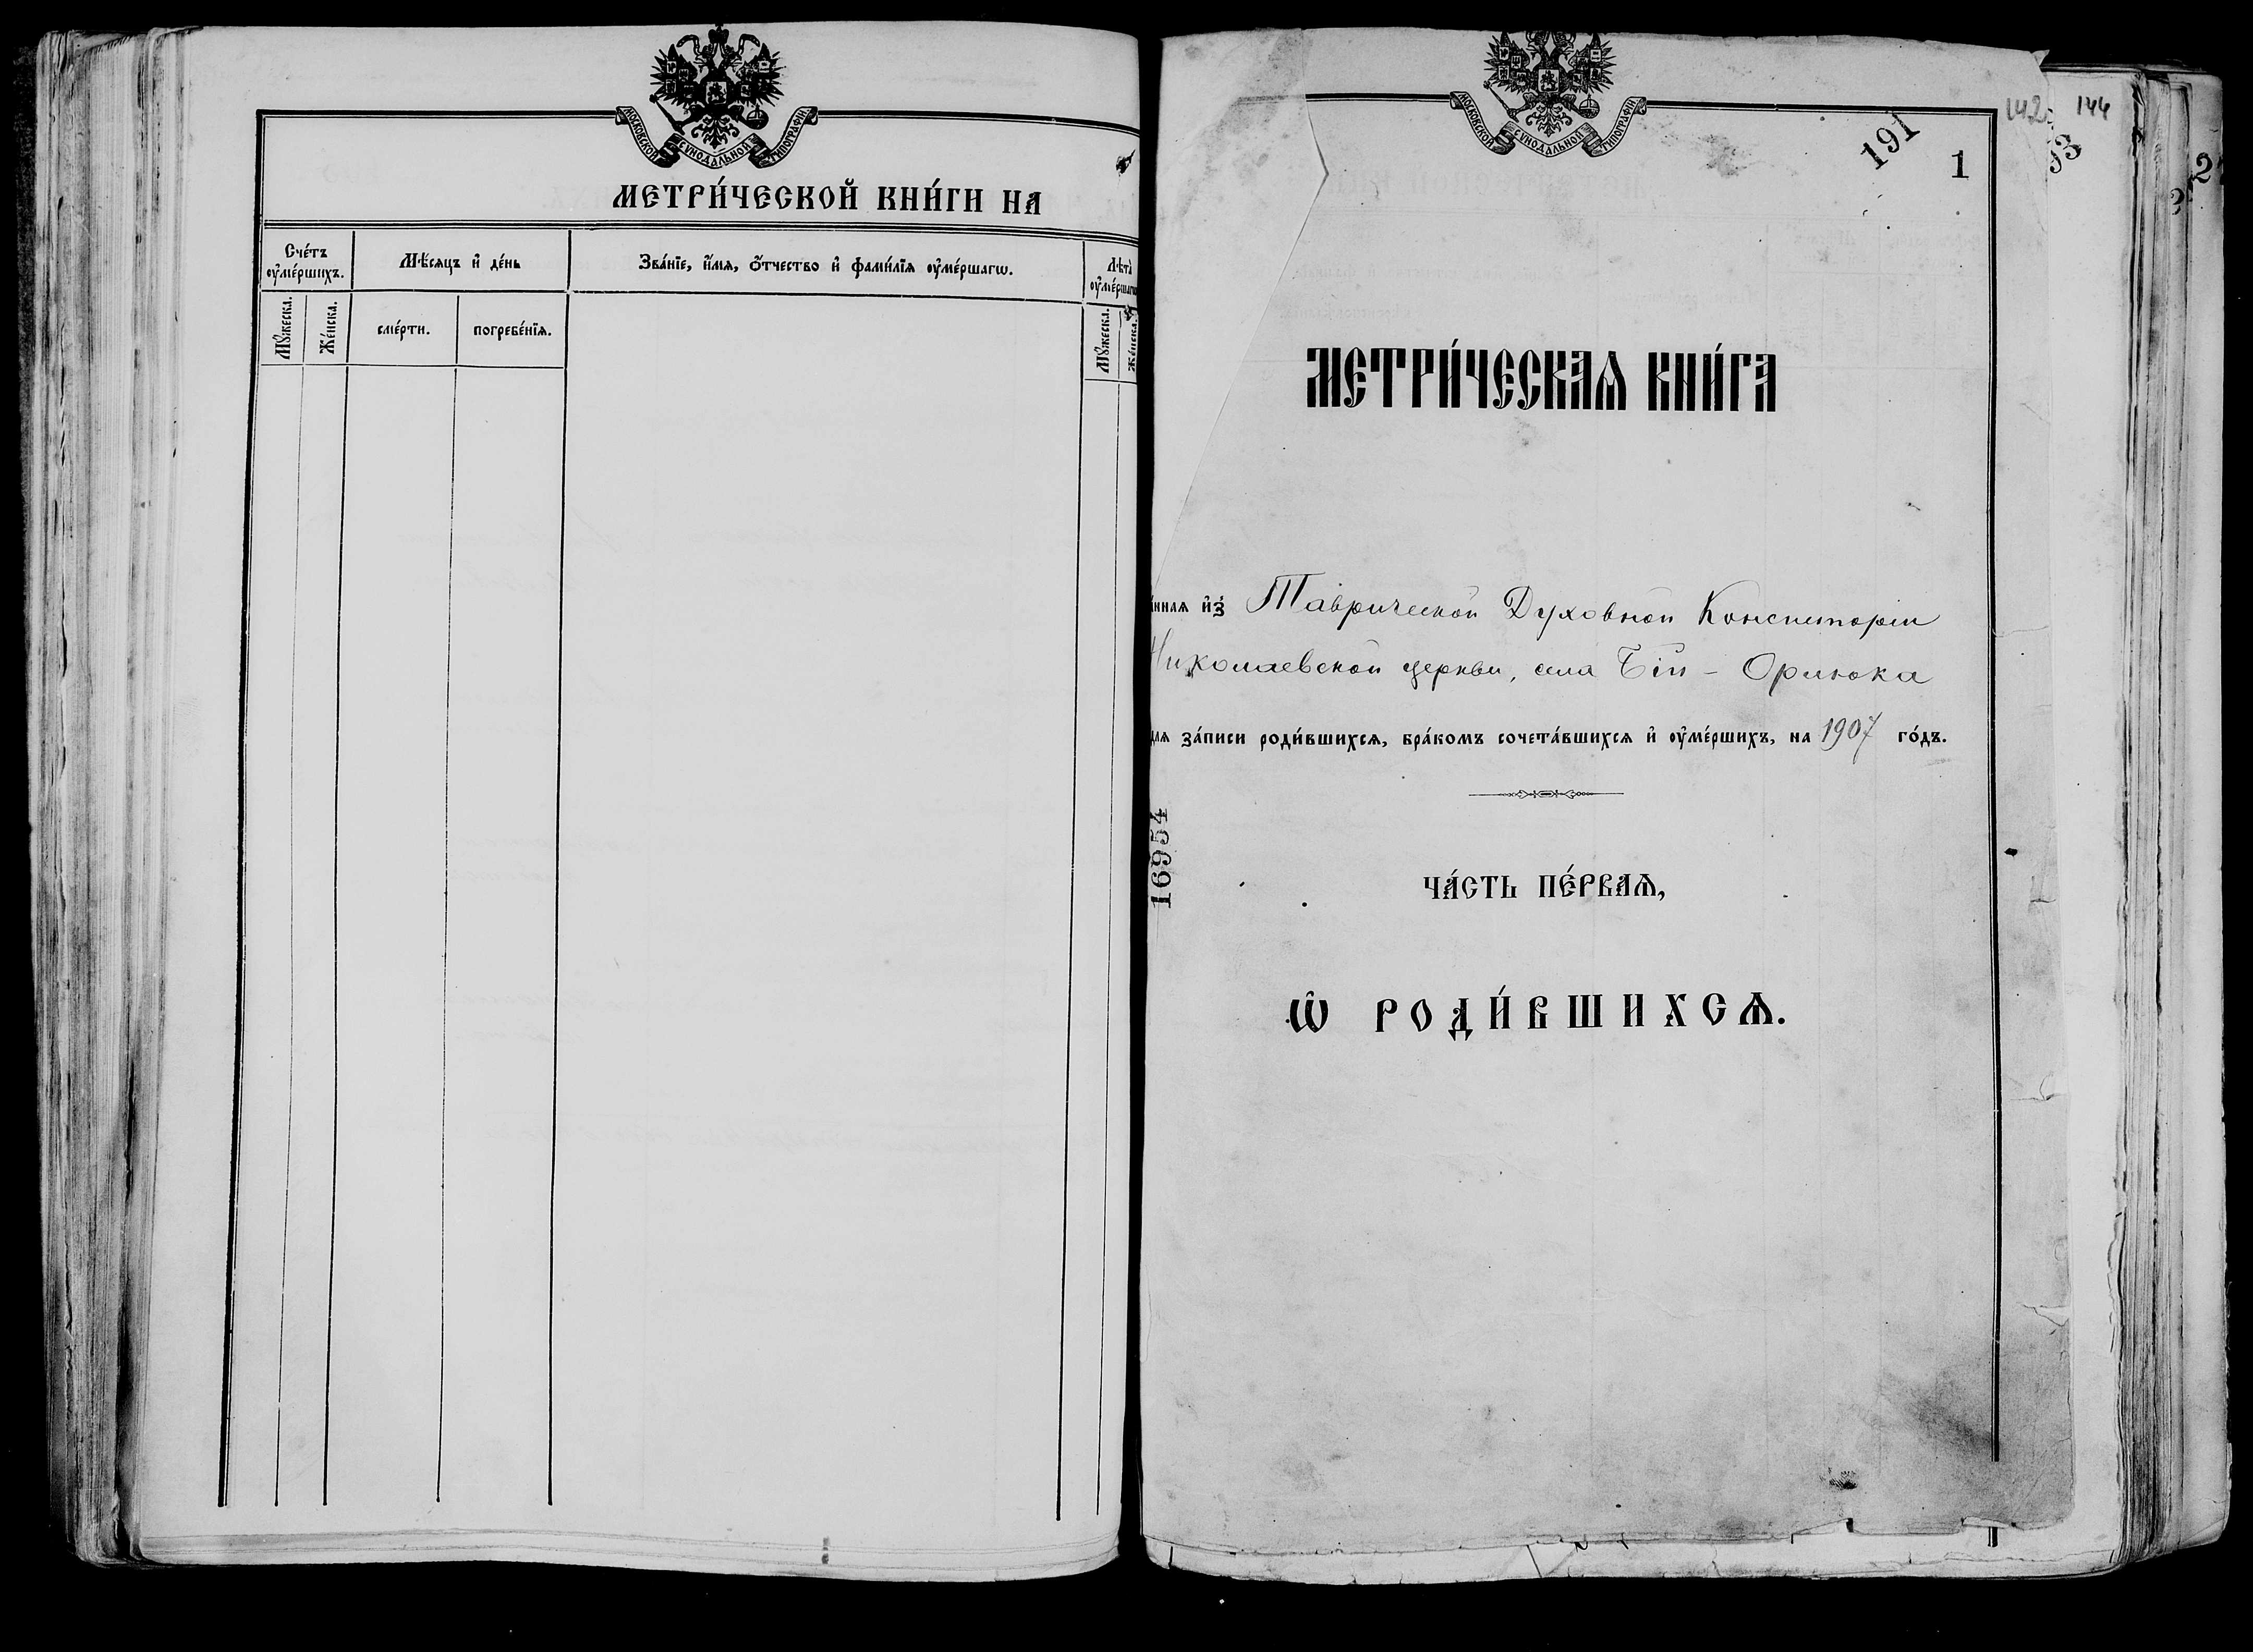 МОСКОВСКОЙ СѴНОДАЛЬНОЙ ТИПОГРАФІИ
МЕТРИ́ЧЕСКОЙ КНИ́ГИ НА
Сче́тъ
ᲂу҆ме́ршихъ.
Мѣ́сяцъ и҆ де́нь
Зва́нїе, и҆́мѧ, ѻ҆́тчество и҆ фами́лїѧ ᲂу҆ме́ршагѡ.
Лѣ́та
ᲂу҆ме́ршагѡ
Мꙋ́жеска.
Же́нска.
сме́рти.
погребе́нїѧ.
Мꙋ́жеска.
Же́нска.
МОСКОВСКОЙ СѴНОДАЛЬНОЙ ТИПОГРАФІИ
142
144
191
1
93
2
МЕТРИ́ЧЕСКАѦ КНИ́ГА
нная и҆з̾ Таврической Духовной Консисторіи
Николаевской церкви, села Бій - Орлюка
для за́писи роди́вшихсѧ, бра́комъ сочета́вшихсѧ и҆ ᲂу҆ме́ршихъ, на 1907 го́дъ.
16954
ЧА́СТЬ ПЕ́РВАѦ,
Ѡ҆ РОДИ́ВШИХСѦ.